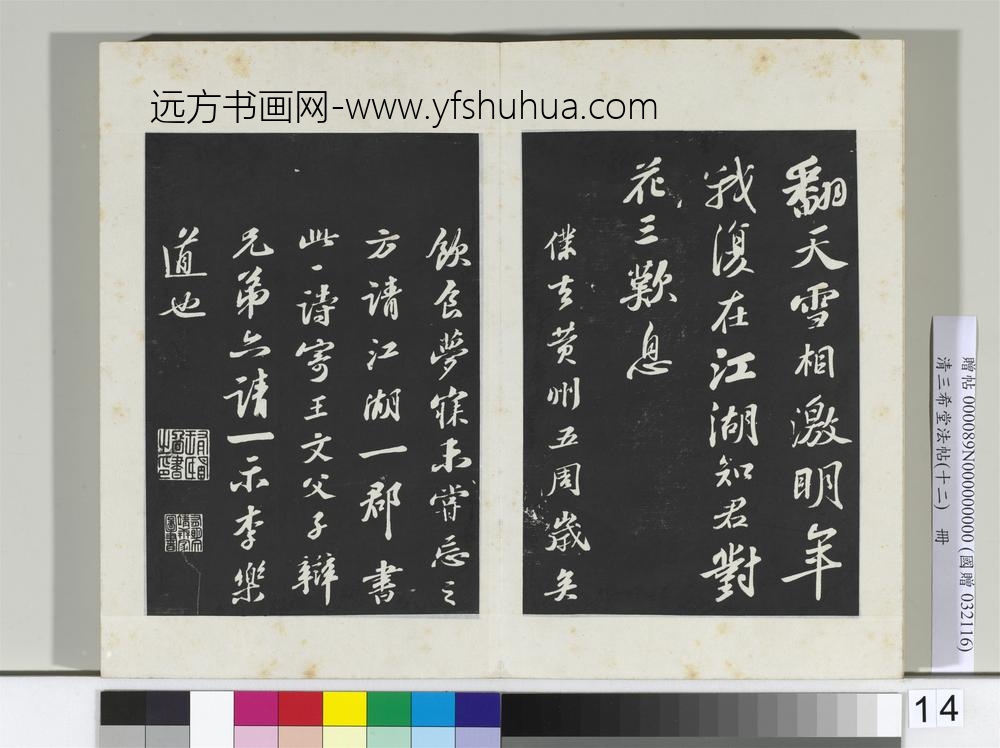 远方书画网-www.yfshuhua.com
翻天雪相激明年
我復在江湖知君對
花三歎息
僕去黄州五周歳矣
飲食夢寐未嘗忘之
方請江湖一郡書
此一詩寄王文父子辯
兄弟亦請一示李樂
道也
贈帖 000089N000000000 (國贈 032116)
清三希堂法帖(十二) 冊
14